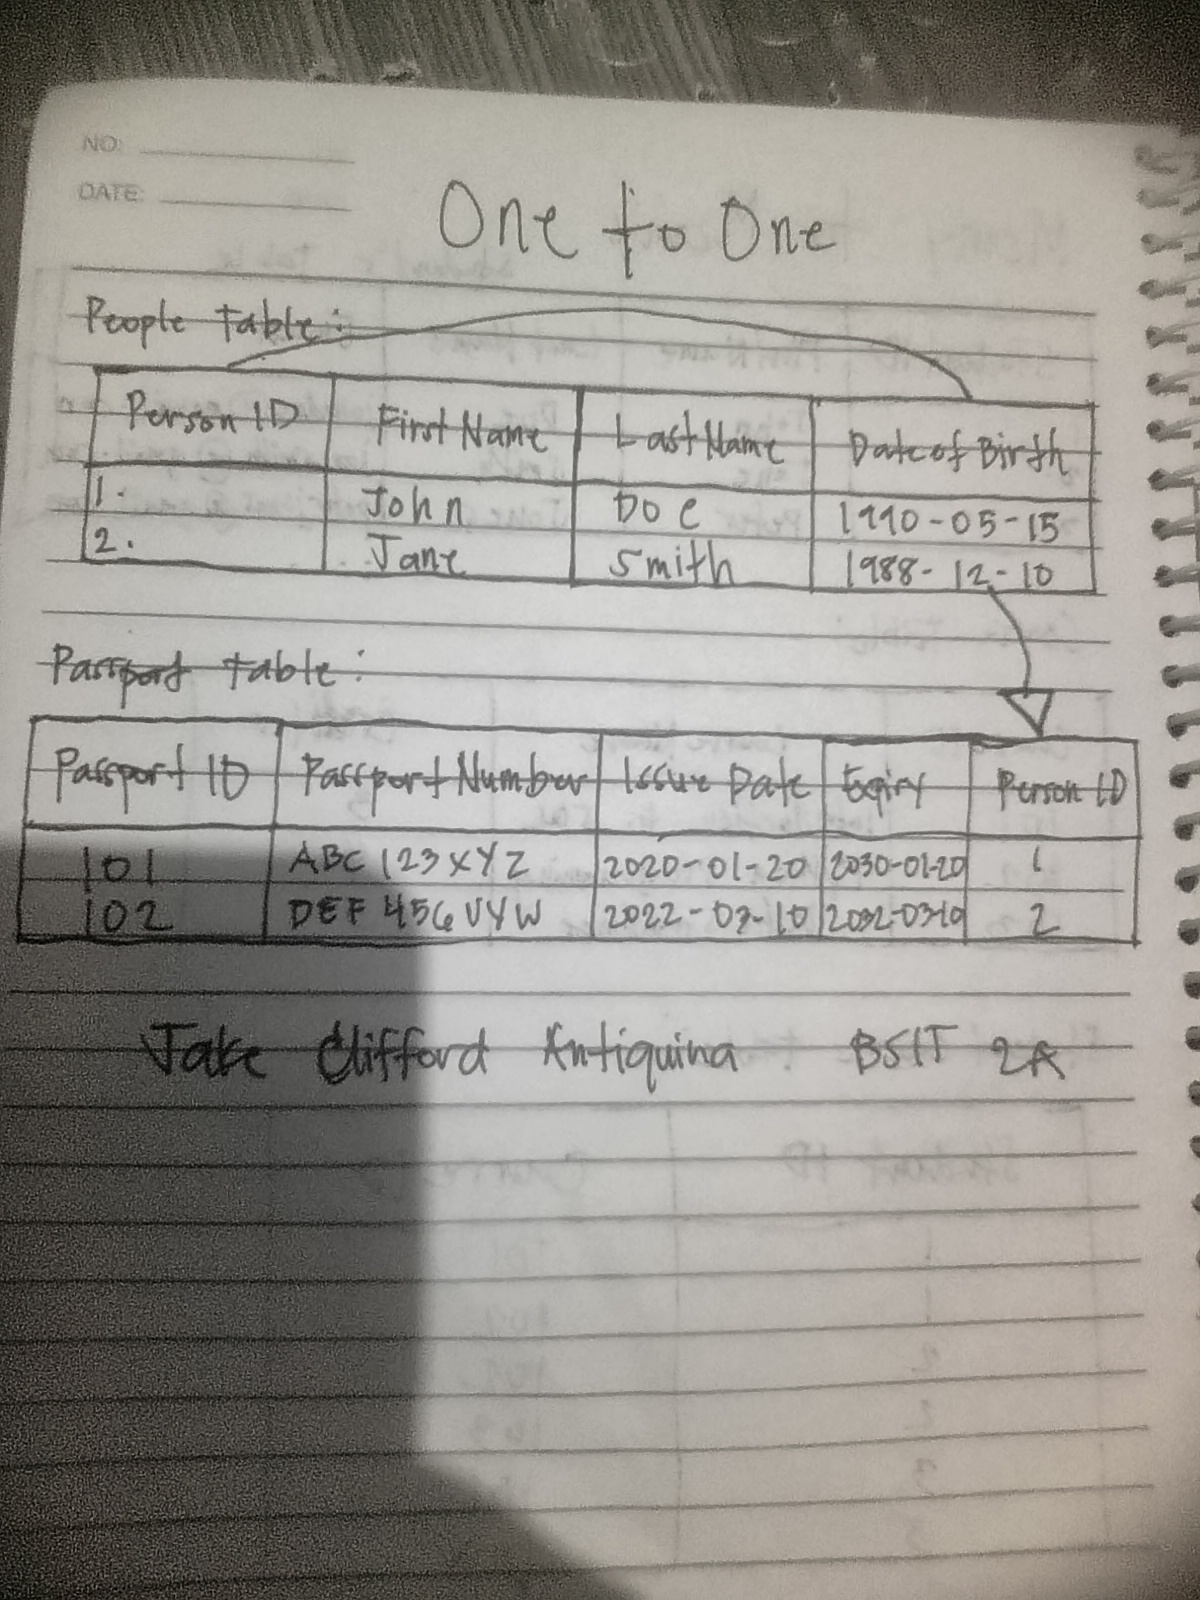 NO:
DATE:
One to One
People Table:
Person ID First Name Last Name Date of Birth
1. John Doe 1990-05-15
2. Jane Smith 1988-12-10
Passport Table:
Passport ID Passport Number Issue Date Expiry Person ID
101 ABC 123 XYZ 2020-01-20 2030-01-20 1
102 DEF 456 UYW 2022-03-10 2032-03-10 2
Jake Clifford Antiquina BSIT 2A